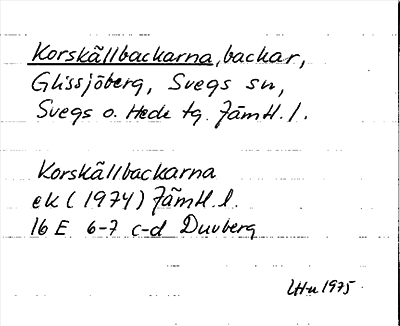 Korskällbackarna, backar,
Glissjöberg, Svegs sn,
Svegs o. Hede tg. Jämtl. l.
Korskällbackarna
ek (1974) Jämtl. l.
16 E 6-7 c-d Duvberg
1975